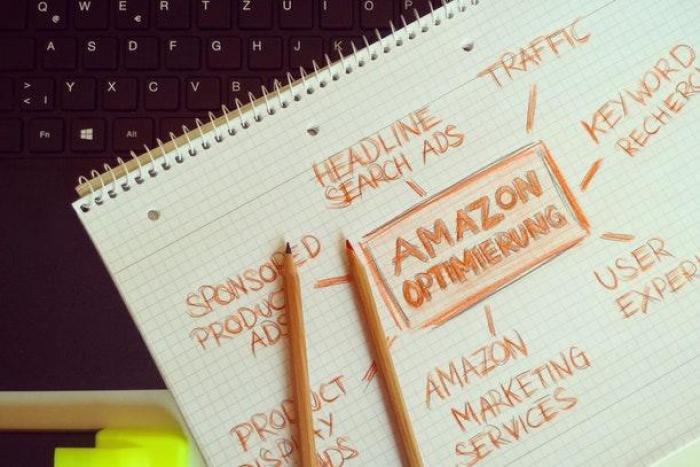 Q W E R T Z U I O P
@ €
A S D F G H J K
>
< | Y X C V B
Fn Alt
TRAFFIC
KEYWORD
HEADLINE
SEARCH ADS
AMAZON
OPTIMIERUNG
USER
SPONSORED
PRODUCT
ADS
AMAZON
MARKETING
SERVICES
PRODUCT
DISPLAY
ADS